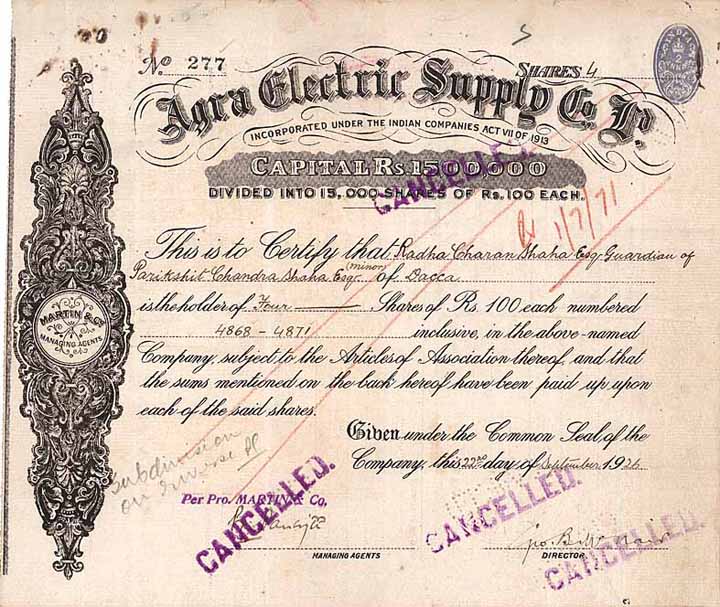 No 277 SHARES 4
INDIA 2 ANNAS
Agra Electric Supply Co. Ld.
INCORPORATED UNDER THE INDIAN COMPANIES ACT VII OF 1913
CAPITAL RS 1500000
DIVIDED INTO 15,000 SHARES OF RS. 100 EACH.
CANCELLED.
1/7/71
This is to Certify that Radha Charan Shaha Esq. Guardian of
Parikshit Chandra Shaha Esqr (minor) of Dacca
is the holder of Four Shares of Rs. 100 each numbered
4868 - 4871 inclusive, in the above-named
Company, subject to the Articles of Association thereof, and that
the sums mentioned on the back hereof have been paid up upon
each of the said shares.
MARTIN & Co
MANAGING AGENTS
Given under the Common Seal of the
Company, this 22nd day of September 1926
Subdivision
on
Per Pro. MARTIN & Co,
CANCELLED.
CANCELLED.
CANCELLED.
MANAGING AGENTS
DIRECTOR